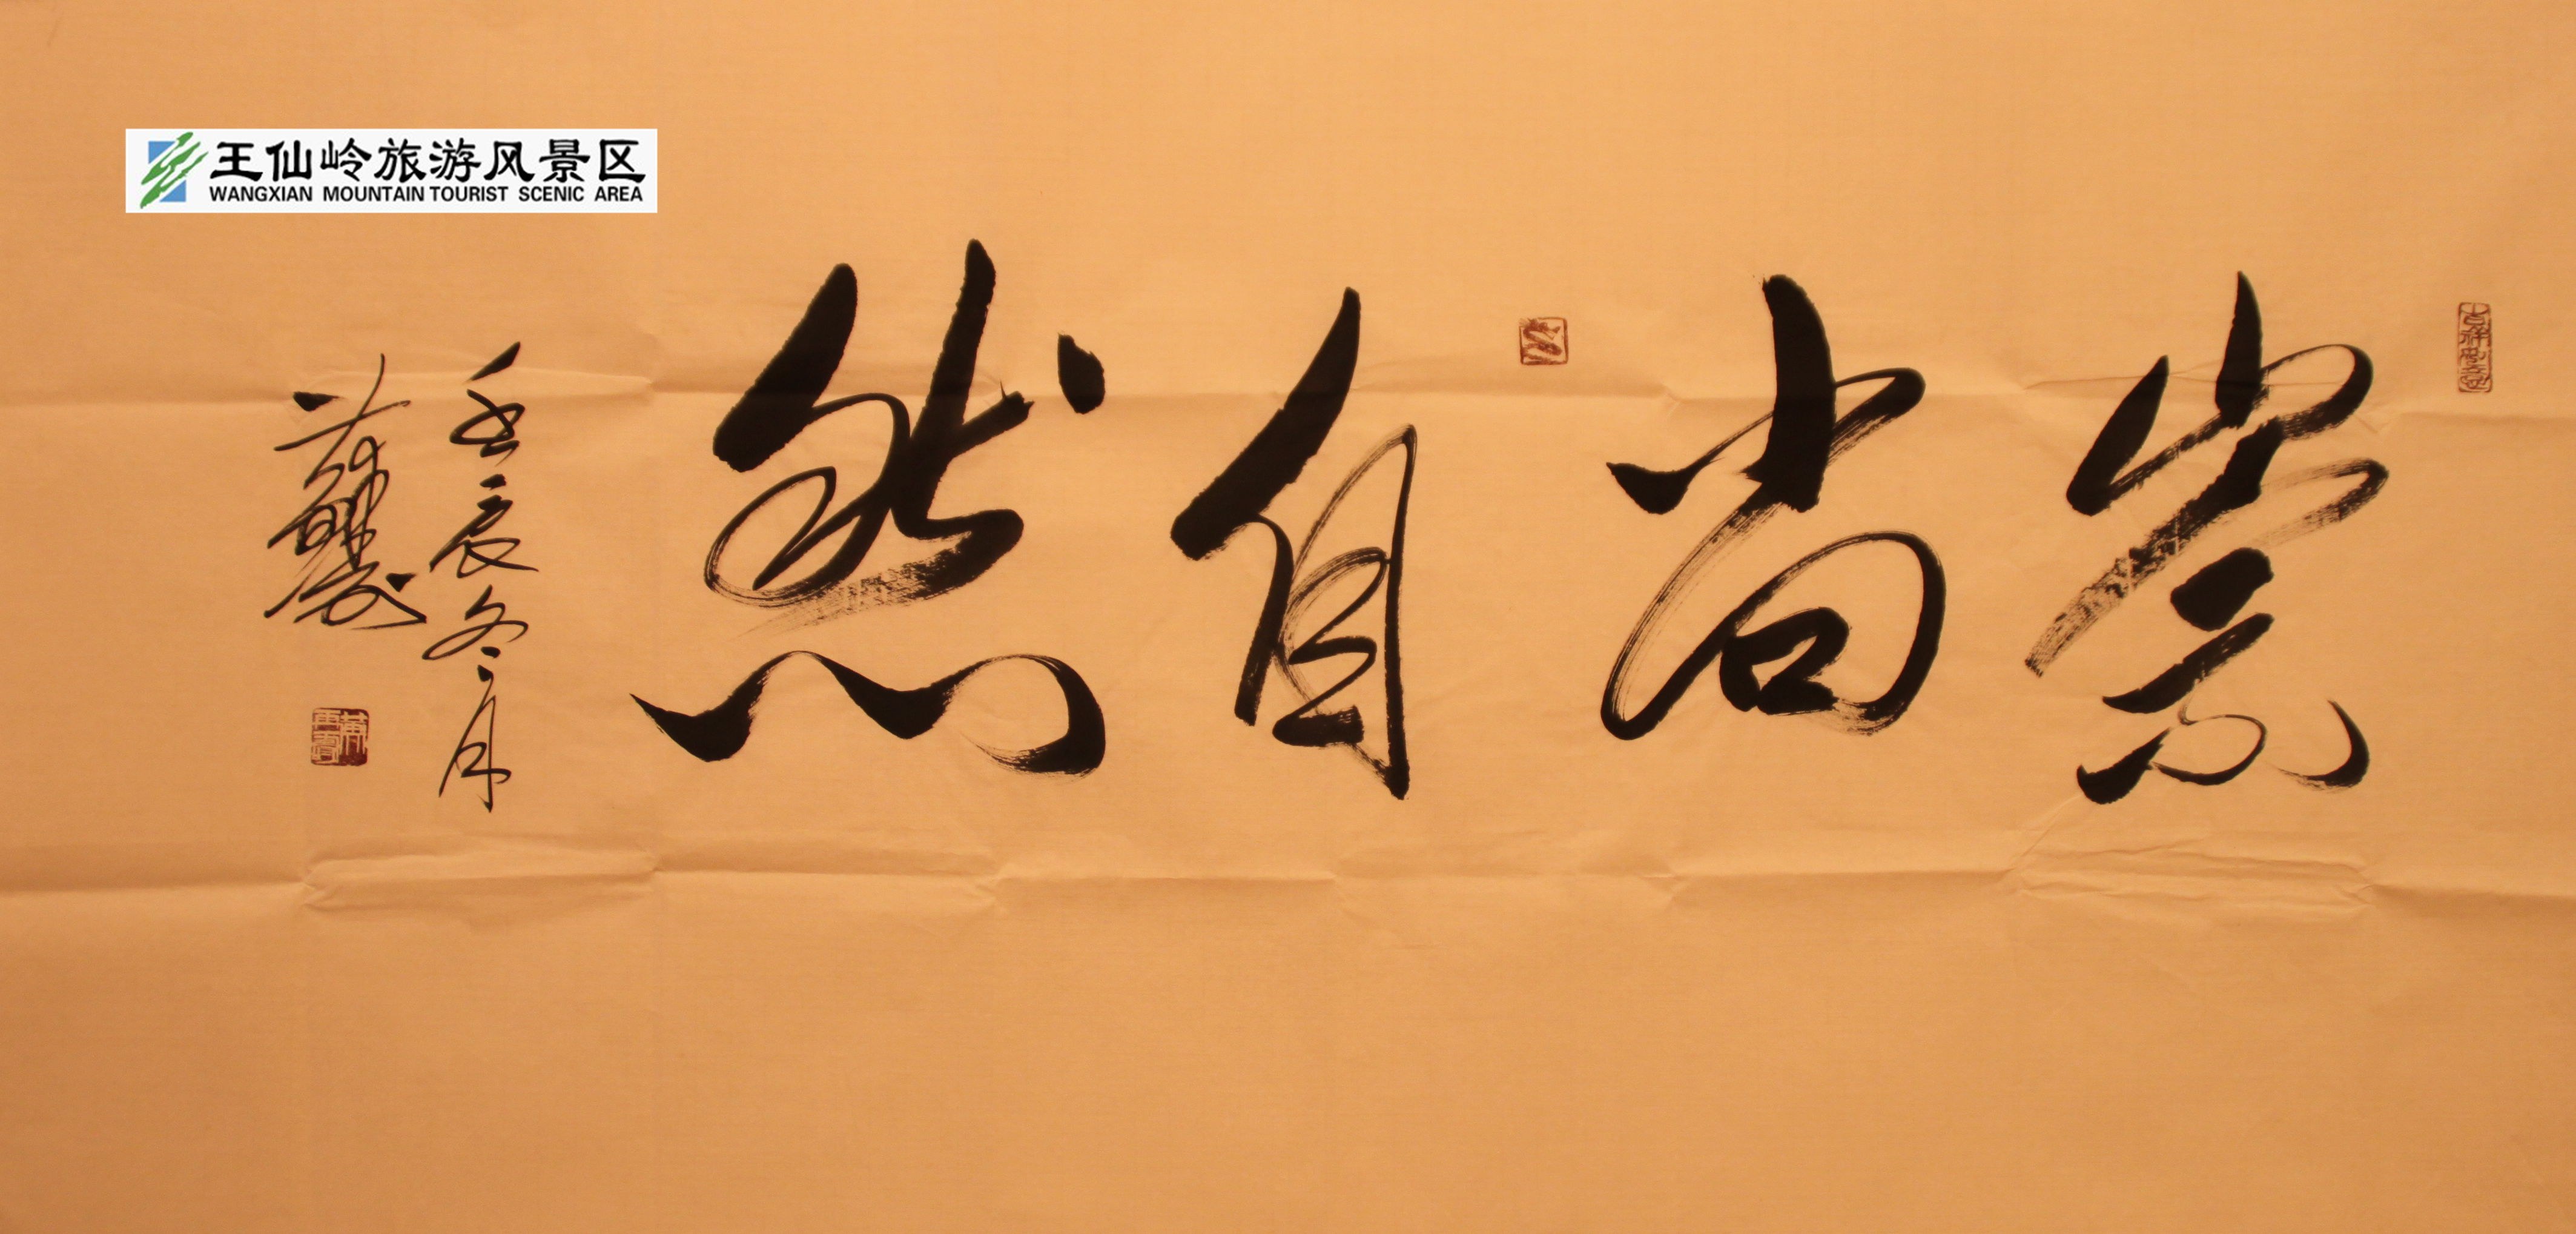 王仙岭旅游风景区
WANGXIAN MOUNTAIN TOURIST SCENIC AREA
崇尚自然
壬辰冬月